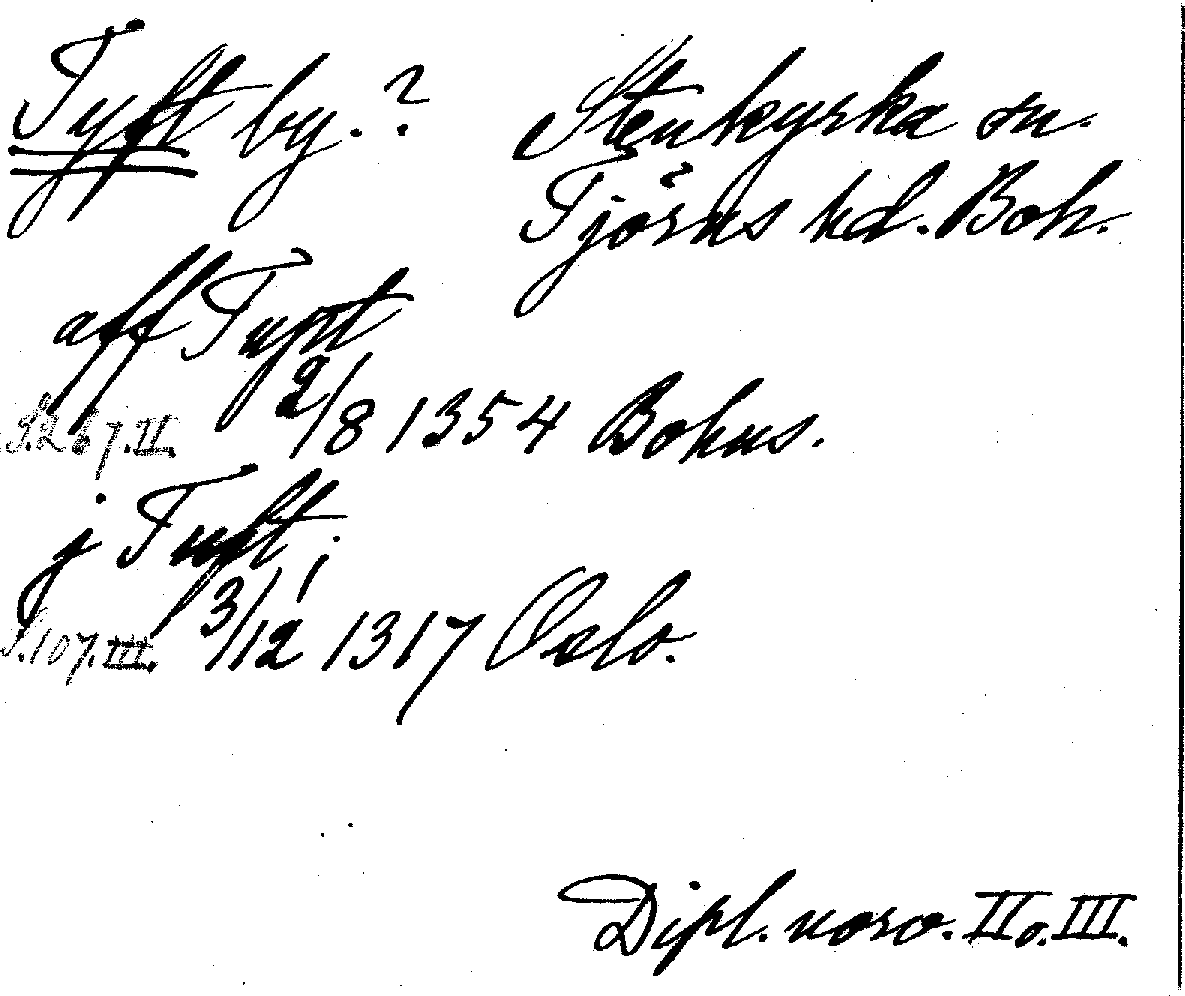 Tyft by.? Stenkyrka sn.
Tjörns hd. Boh.
aff Tupt
S.267.II. 2/8 1354 Bohus.
j Tuft;
S.107.III. 3/12 1317 Oslo.
Dipl. norv. II o. III.